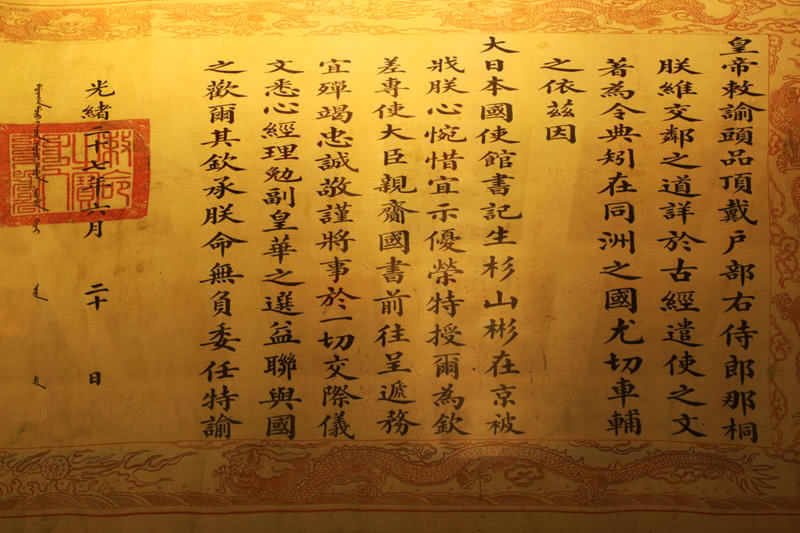 皇帝敕諭頭品頂戴戶部右侍郎那桐
朕維交鄰之道詳於古經遣使之文
著為令典矧在同洲之國尤切車輔
之依茲因
大日本國使館書記生杉山彬在京被
戕朕心惋惜宜示優榮特授爾為欽
差專使大臣親齎國書前往呈遞務
宜殫竭忠誠敬謹將事於一切交際儀
文悉心經理勉副皇華之選益聯與國
之歡爾其欽承朕命無負委任特諭
光緒二十七年六月 二十 日